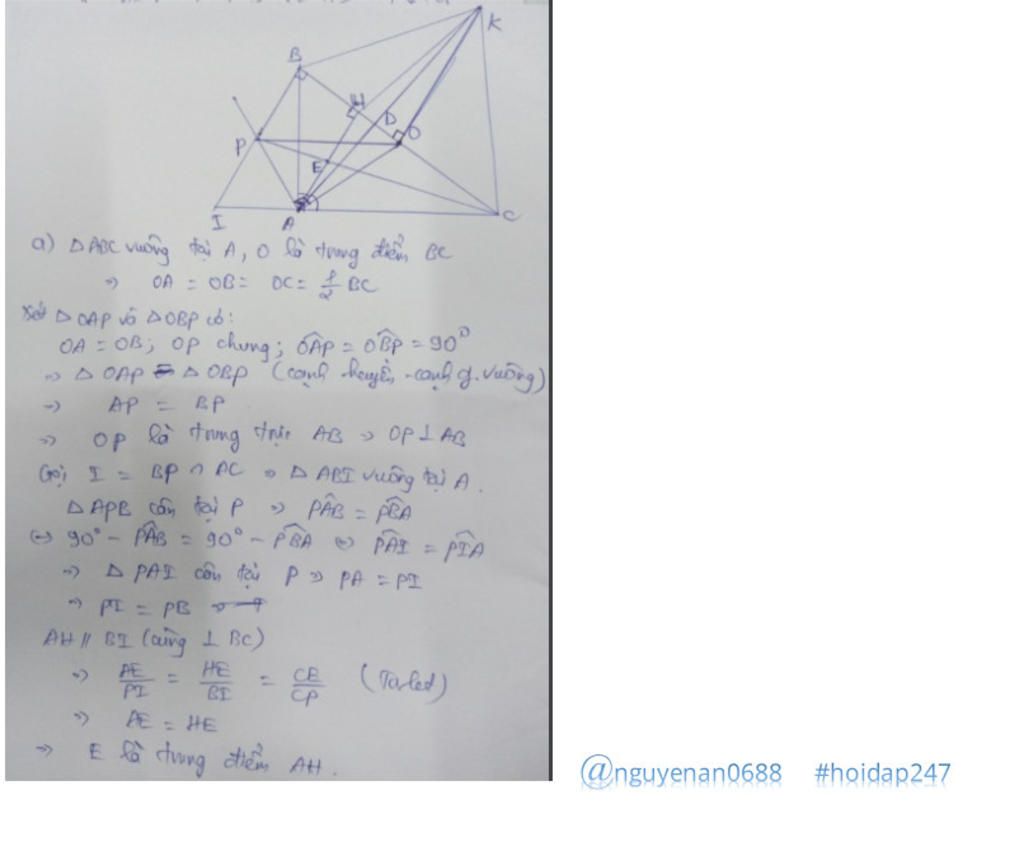 K
B
H
D
O
P
E
I
A
C
a) △ABC vuông tại A, O là trung điểm BC
=> OA = OB = OC = 1/2 BC
Xét △OAP và △OBP có:
OA = OB; OP chung; OAP = OBP = 90°
=> △OAP = △OBP (cạnh huyền - cạnh g. vuông)
=> AP = BP
=> OP là trung trực AB => OP ⊥ AB
Gọi I = BP ∩ AC => △ABI vuông tại A.
△APB cân tại P => PAB = PBA
<=> 90° - PAB = 90° - PBA <=> PAI = PIA
=> △PAI cân tại P => PA = PI
=> PI = PB
AH // BI (cùng ⊥ BC)
=> AE/PI = HE/BI = CE/CP (Talet)
=> AE = HE
=> E là trung điểm AH.
@nguyenan0688 #hoidap247